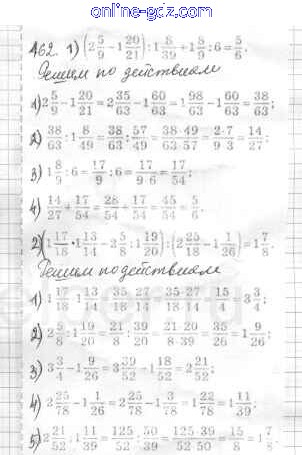 online-gdz.com
462. 1) (2 5/9 - 1 20/21) : 1 8/39 + 1 8/9 : 6 = 5/6.
Решаем по действиям
1) 2 5/9 - 1 20/21 = 2 35/63 - 1 60/63 = 1 98/63 - 1 60/63 = 38/63;
2) 38/63 : 1 8/49 = 38/63 : 57/49 = 38·49/63·57 = 2·7/9·3 = 14/27;
3) 1 8/9 : 6 = 17/9 : 6 = 17/9·6 = 17/54;
4) 14/27 + 17/54 = 28/54 + 17/54 = 45/54 = 5/6.
2) (1 17/18 · 1 13/14 - 2 5/8 : 1 19/20) : (2 25/78 - 1 1/26) = 1 7/8.
Решаем по действиям
1) 1 17/18 · 1 13/14 = 35/18 · 27/14 = 35·27/18·14 = 15/4 = 3 3/4;
2) 2 5/8 : 1 19/20 = 21/8 : 39/20 = 21·20/8·39 = 35/26 = 1 9/26;
3) 3 3/4 - 1 9/26 = 3 39/52 - 1 18/52 = 2 21/52;
4) 2 25/78 - 1 1/26 = 2 25/78 - 1 3/78 = 1 22/78 = 1 11/39;
5) 2 21/52 : 1 11/39 = 125/52 : 50/39 = 125·39/52·50 = 15/8 = 1 7/8.